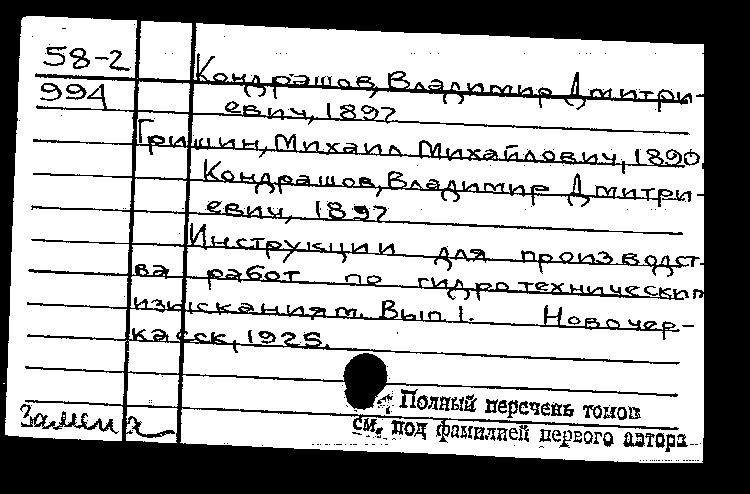 58-2
994
Кондрашов, Владимир Дмитри-
евич, 1897
Гришин, Михаил Михайлович, 1890.
Кондрашов, Владимир Дмитри-
евич, 1897
Инструкции для производст-
ва работ по гидротехническим
изысканиям. Вып 1. Новочер-
касск, 1925.
Полный перечень томов
см. под фамилией первого автора
Замена